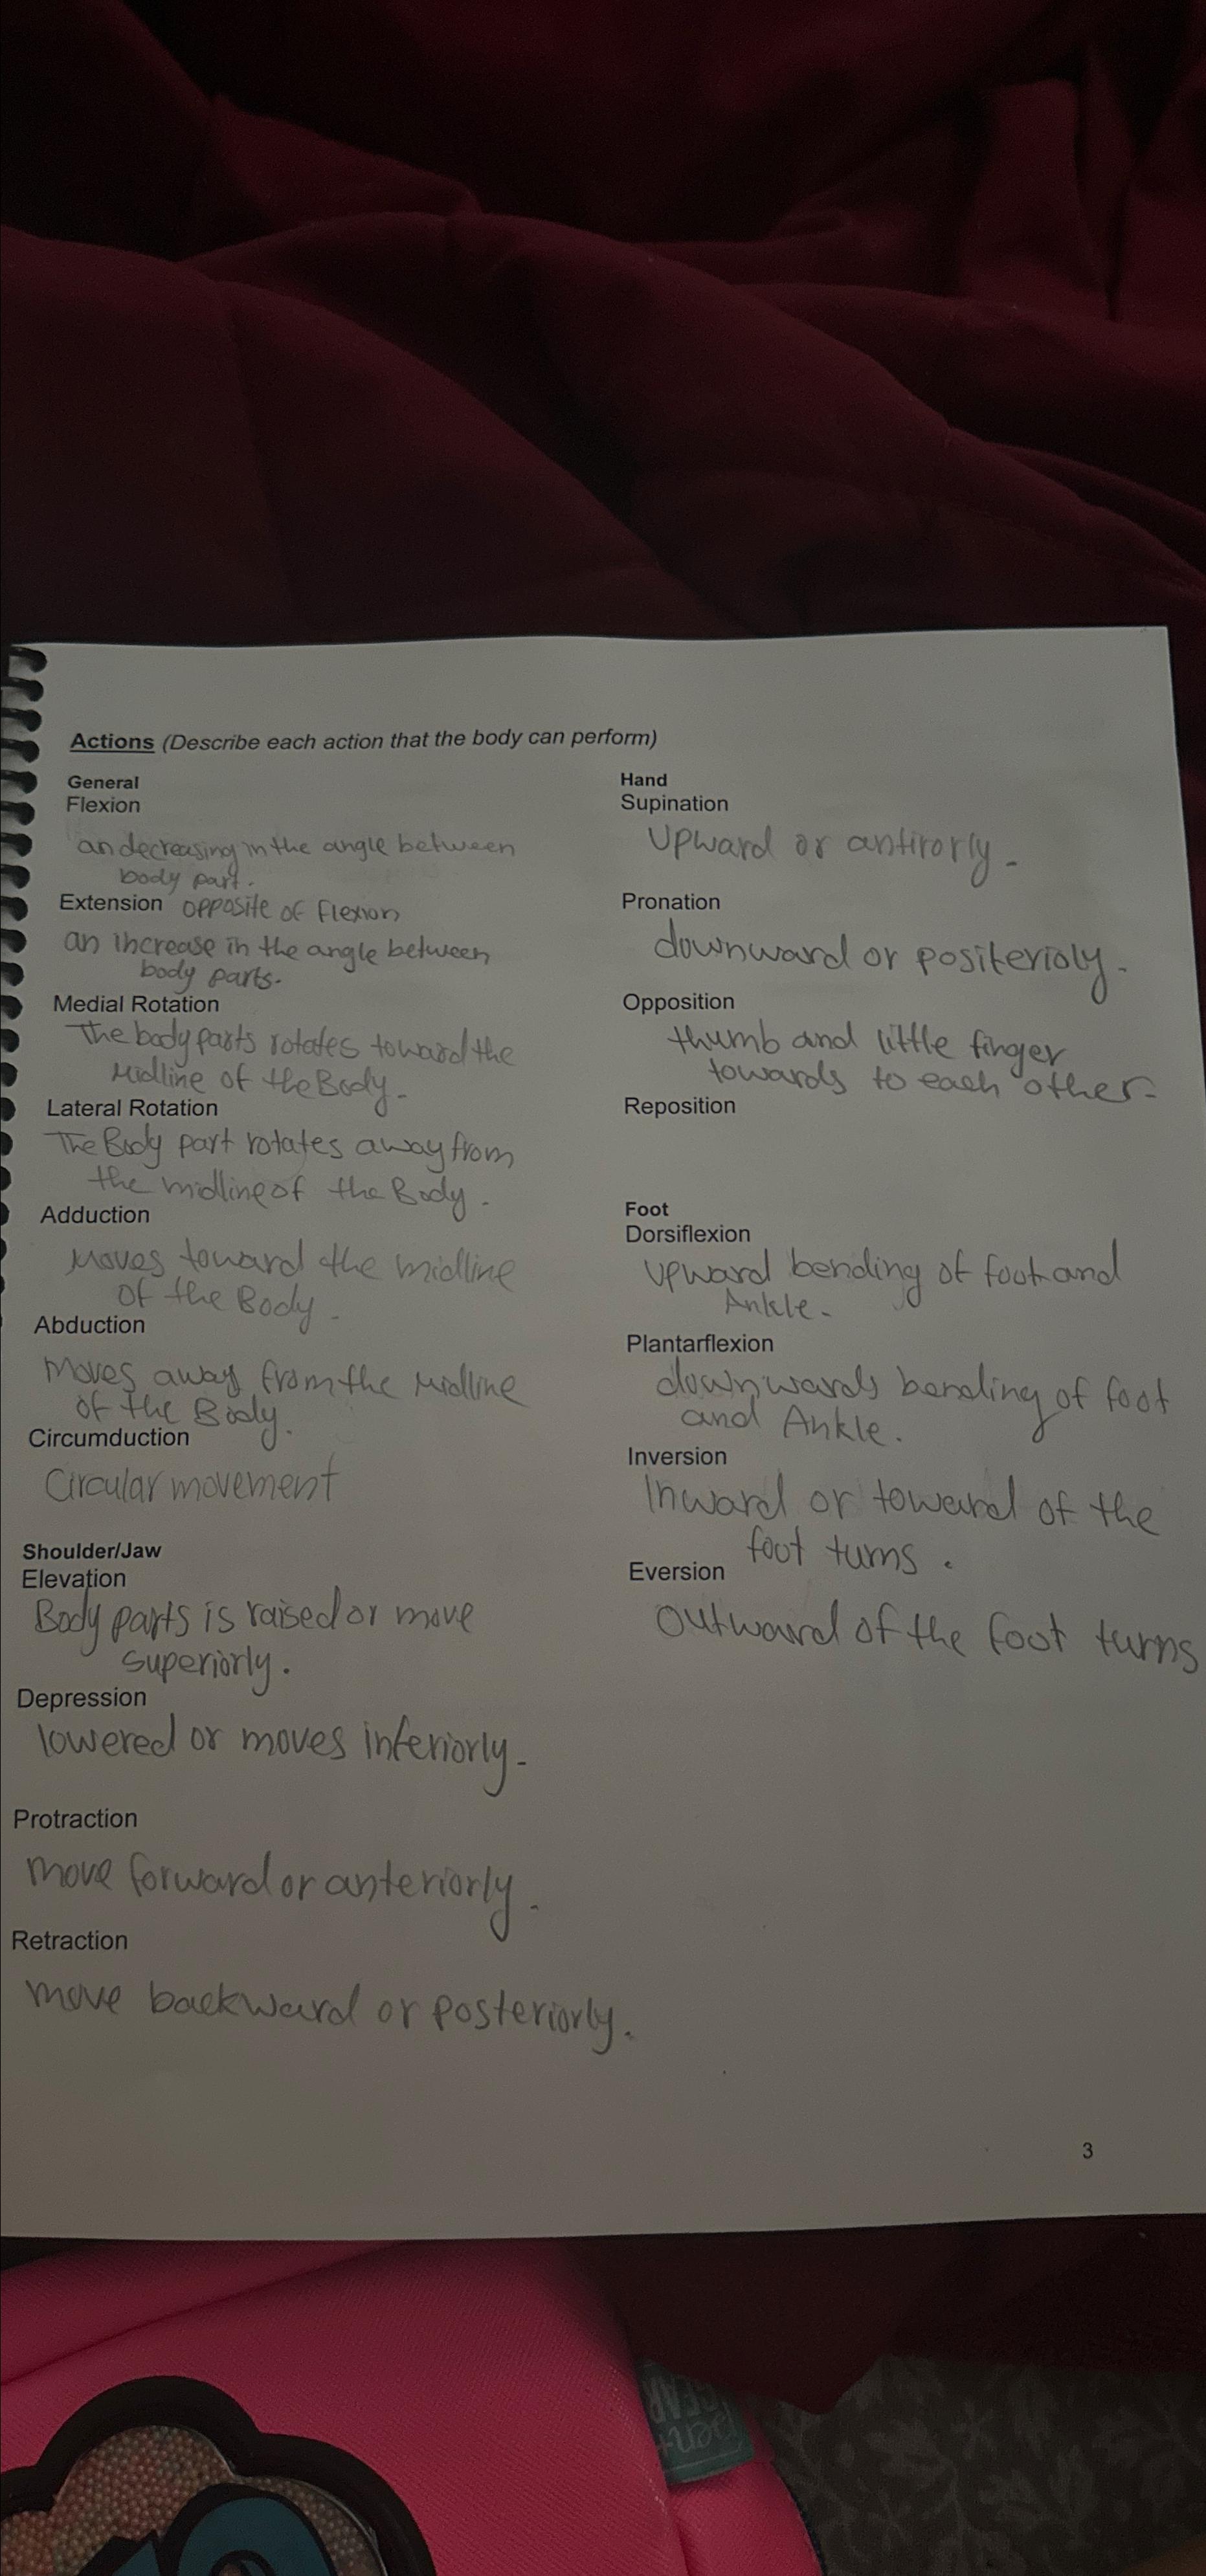 Actions (Describe each action that the body can perform)
General
Flexion
an decreasing in the angle between
body part.
Extension opposite of flexion
an increase in the angle between
body parts.
Medial Rotation
The body parts rotates toward the
Midline of the Body.
Lateral Rotation
The Body part rotates away from
the midline of the Body.
Adduction
Moves toward the midline
of the Body.
Abduction
Moves away from the Midline
of the Body.
Circumduction
Circular movement
Shoulder/Jaw
Elevation
Body parts is raised or move
superiorly.
Depression
lowered or moves inferiorly.
Protraction
move forward or anteriorly.
Retraction
move backward or posteriorly.
Hand
Supination
Upward or antirorly.
Pronation
downward or positerioly.
Opposition
thumb and little finger
towards to each other.
Reposition
Foot
Dorsiflexion
upward bending of foot and
Ankle.
Plantarflexion
downwards bending of foot
and Ankle.
Inversion
Inward or toward of the
foot turns.
Eversion
Outward of the foot turns
3
GEAR